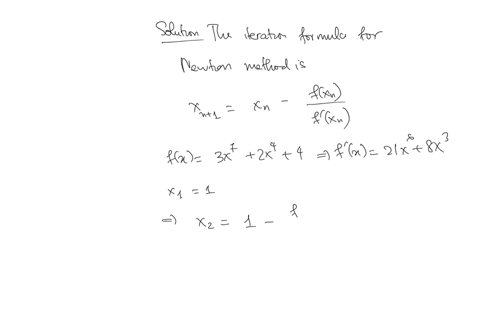 Solution The iteration formula for
Newton method is
x_{n+1} = x_n - f(x_n)/f'(x_n)
f(x) = 3x^7 + 2x^4 + 4 ⇒ f'(x) = 21x^6 + 8x^3
x_1 = 1
⇒ x_2 = 1 - f